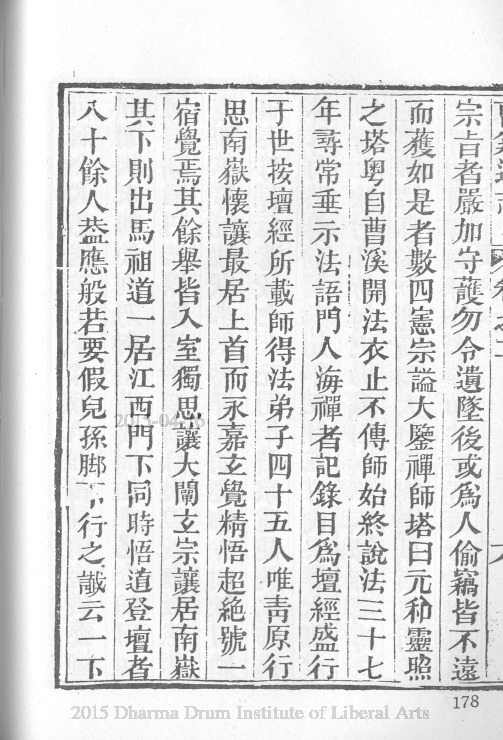 宗旨者嚴加守護勿令遺墜後或爲人偷竊皆不遠
而獲如是者數四憲宗謚大鑒禪師塔曰元和靈照
之塔粵自曹溪開法衣止不傳師始終說法三十七
年尋常垂示法語門人海禪者記錄目爲壇經盛行
于世按壇經所載師得法弟子四十五人唯靑原行
思南嶽懷讓最居上首而永嘉玄覺精悟超絕號一
宿覺焉其餘舉皆入室獨思讓大闡玄宗讓居南嶽
其下則出馬祖道一居江西門下同時悟道登壇者
八十餘人葢應般若要假兒孫脚下行之讖云一下
178
2015 Dharma Drum Institute of Liberal Arts